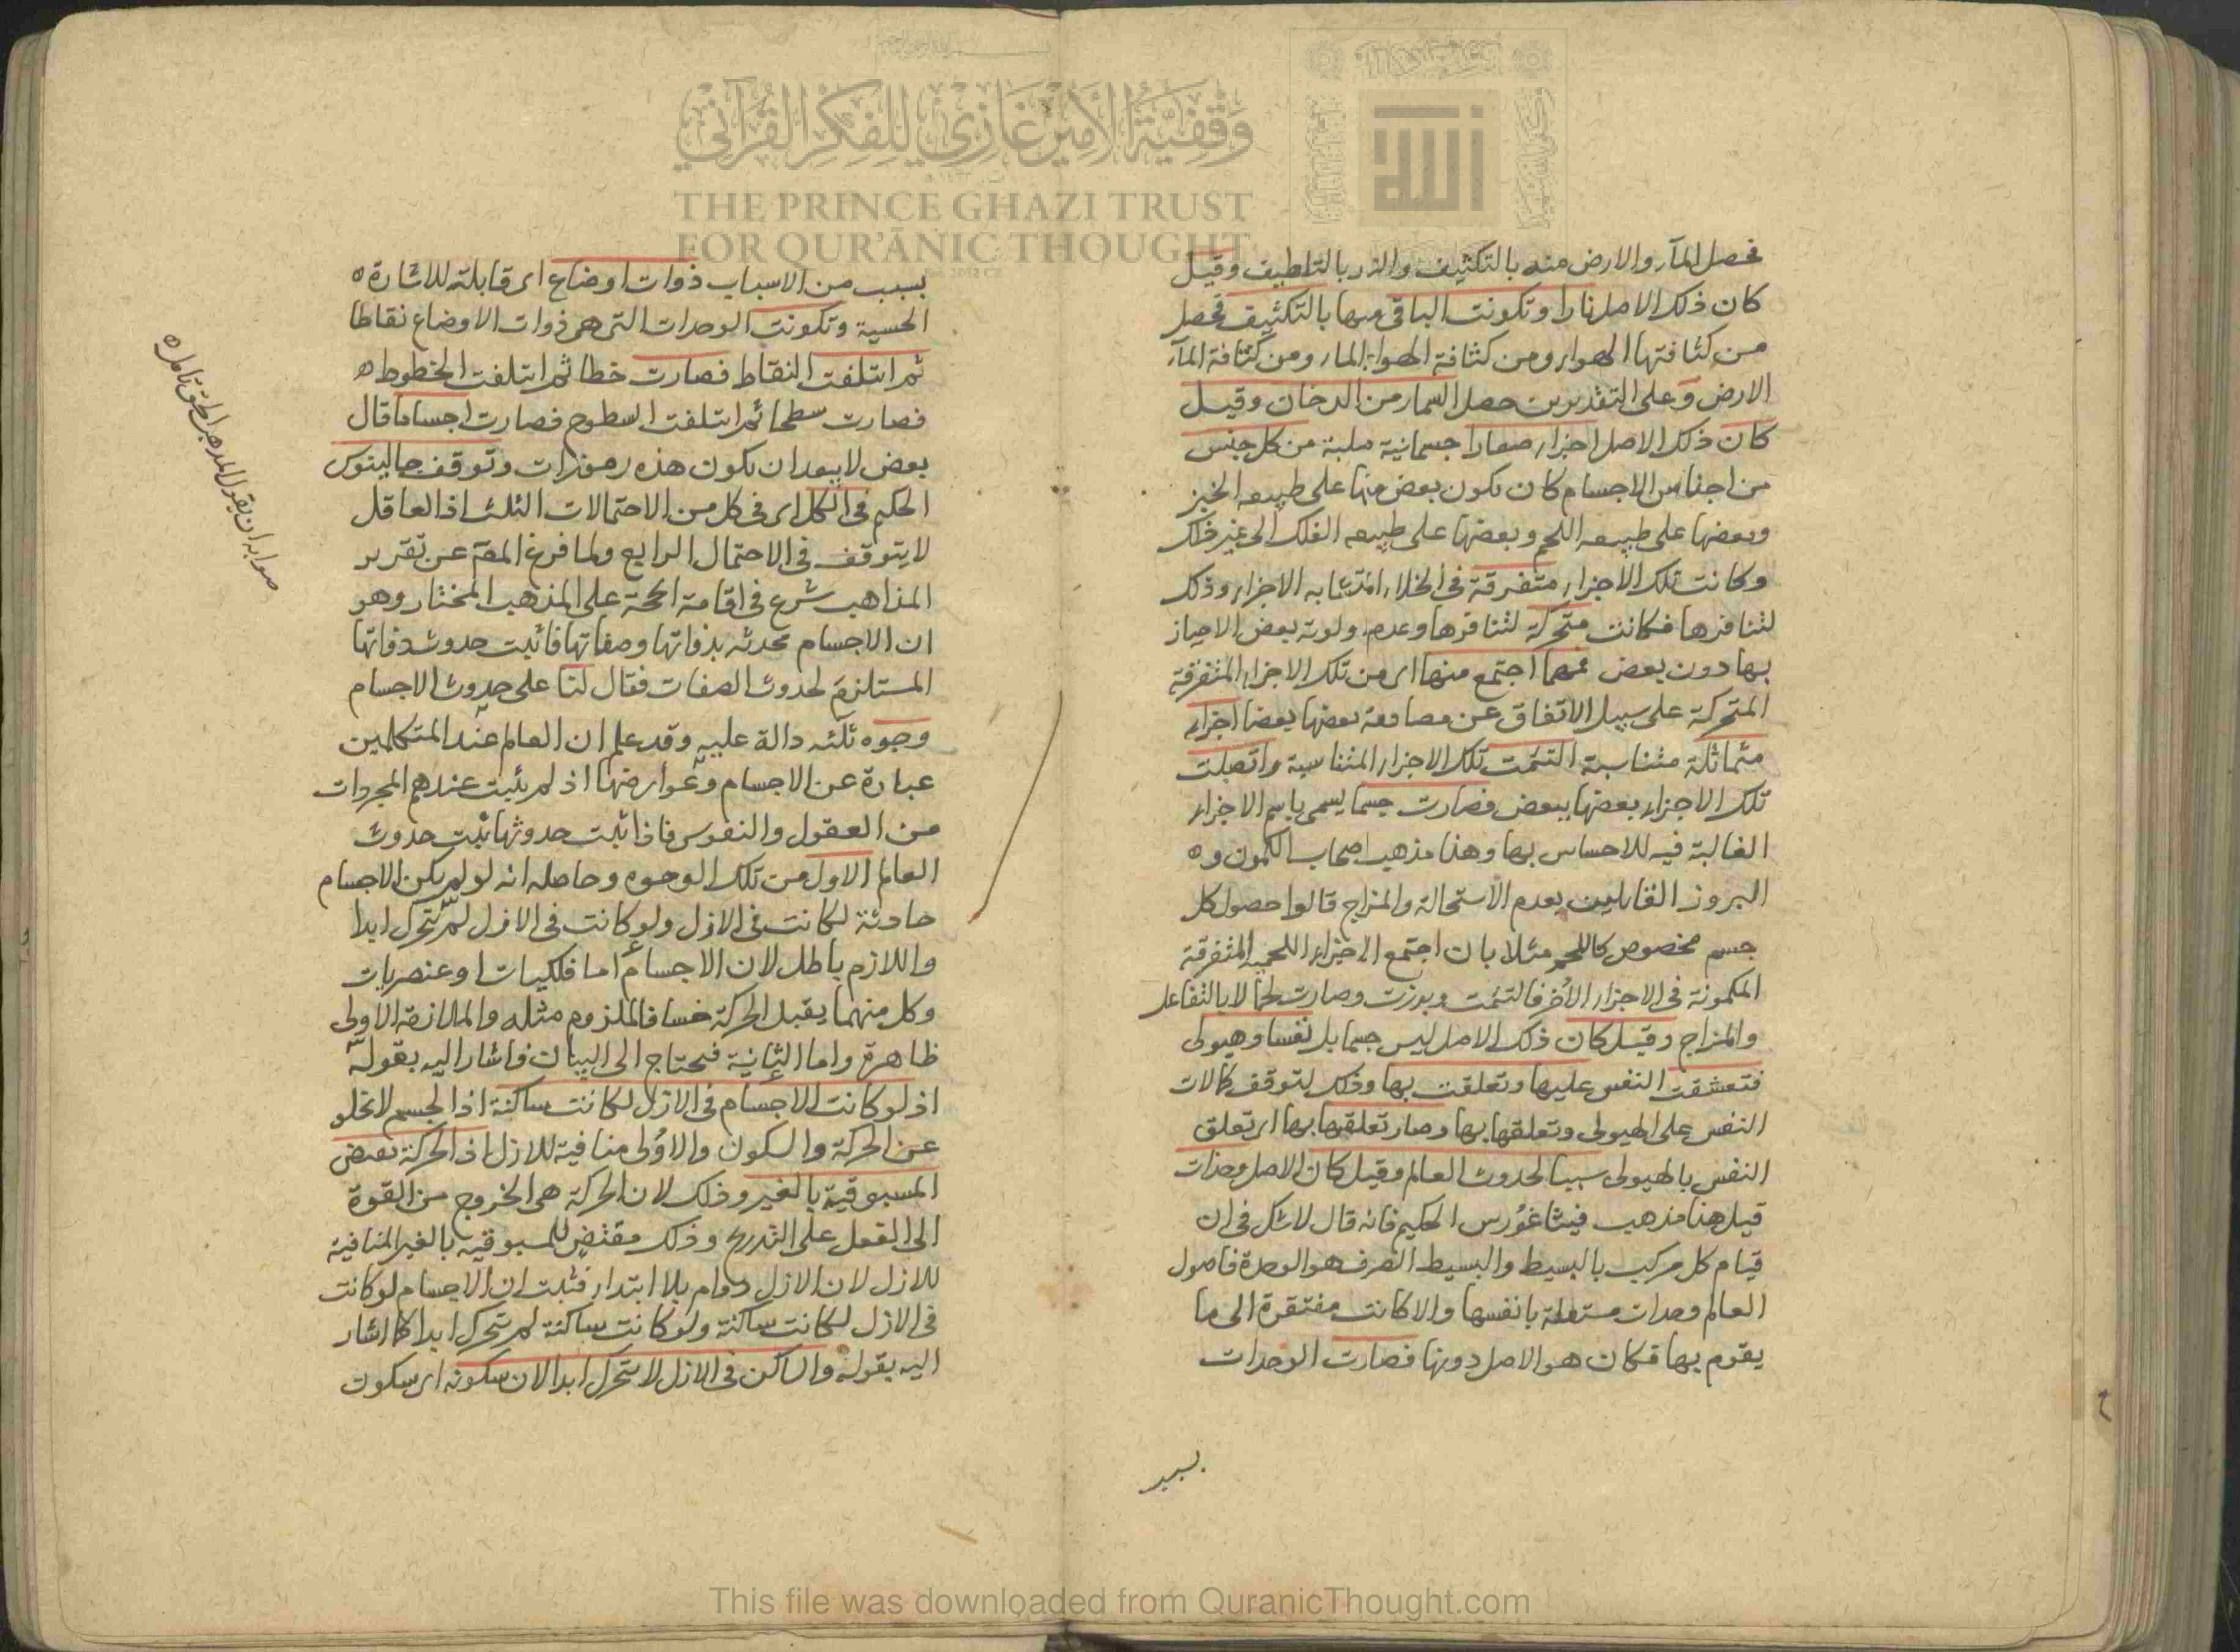 فحصل المآء والارض منه بالتكثيف والنار بالتلطيف وقيل
كان ذلك الاصل نارا وتكونت الباقى منها بالتكثيف فحصل
من كثافتها الهواء ومن كثافة الهواء الماء ومن كثافة المآء
الارض وعلى التقديرين حصل السماء من الدخان وقيل
كان ذلك الاصل اجزاء صغارا جسمانية صلبة من كل جنس
من اجناس الاجسام كان تكون بعض منها على طبيعه الخبز
وبعضها على طبيعه اللحم وبعضها على طبيعه الفلك الى غير ذلك
وكانت تلك الاجزاء متفرقة فى الخلاء المتشابه الاجزاء وذلك
لتنافرها فكانت متحركة لتنافرها وعدم اولوية بعض الاحياز
بها دون بعض فمهما اجتمع منها اى من تلك الاجزاء المتفرقة
المتحركة على سبيل الاتفاق عن مصادمة بعضها بعضا اجزاء
متماثلة متناسبة التئمت تلك الاجزاء المتناسبة واتصلت
تلك الاجزاء بعضها ببعض فصارت جسما يسمى باسم الاجزاء
الغالبة فيه للاحساس بها وهذا مذهب اصحاب الكمون و
البروز القايلين بعدم الاستحالة والمزاج قالوا حصول كل
جسم مخصوص كاللحم مثلا بان اجتمع الاجزاء اللحمية المتفرقة
المكمونة فى الاجزاء الأخر فالتئمت وبرزت وصارت لحما لا بالتفاعل
والمزاج وقيل كان ذلك الاصل ليس جسما بل نفسا وهيولى
فتعشقت النفس عليها وتعلقت بها وذلك لتوقف كمالات
النفس على الهيولى وتعلقها بها وصار تعلقها بها اى تعلق
النفس بالهيولى سببا لحدوث العالم وقيل كان الاصل وحدات
قيل هذا مذهب فيثاغورس الحكيم فانه قال لاشك فى ان
قيام كل مركب بالبسيط والبسيط الصرف هو الوحدة فاصول
العالم وحدات مستقلة بانفسها والا كانت مفتقرة الى ما
يقوم بها فكان هو الاصل دونها فصارت الوحدات
بسبب
بسبب من الاسباب ذوات اوضاع اى قابلة للاشارة
الحسية وتكونت الوحدات التى هى ذوات الاوضاع نقاطا
ثم ائتلفت النقاط فصارت خطا ثم ائتلفت الخطوط
فصارت سطحا ثم ائتلفت السطوح فصارت اجساما قال
بعض لا يبعد ان تكون هذه رموزات وتوقف جالينوس
الحكيم فى الكل اى فى كل من الاحتمالات الثلث اذ العاقل
لا يتوقف فى الاحتمال الرابع ولما فرغ المص عن تقرير
المذاهب شرع فى اقامة الحجة على المذهب المختار وهو
ان الاجسام محدثه بذواتها وصفاتها فاثبت حدوث ذواتها
المستلزم لحدوث الصفات فقال لنا على حدوث الاجسام
وجوه ثلثه دالة عليه وقد علم ان العالم عند المتكلمين
عبارة عن الاجسام وعوارضها اذ لم يثبت عندهم المجردات
من العقول والنفوس فاذا ثبت حدوثها ثبت حدوث
العالم الاول من تلك الوجوه وحاصله انه لو لم يكن الاجسام
حادثة لكانت فى الازل ولو كانت فى الازل لم تتحرك ابدا
واللازم باطل لان الاجسام اما فلكيات او عنصريات
وكل منهما يقبل الحركة حسا فالملزوم مثله والملازمة الاولى
ظاهرة واما الثانية فيحتاج الى البيان فاشار اليه بقوله
اذ لو كانت الاجسام فى الازل لكانت ساكنة اذ الجسم لا تخلو
عن الحركة والسكون والاولى منافية للازل اذ الحركة تقتضى
المسبوقية بالغير وذلك لان الحركة هى الخروج من القوة
الى الفعل على التدريج وذلك مقتض للمسبوقية بالغير المنافية
للازل لان الازل دوام بلا ابتداء فثبت ان الاجسام لو كانت
فى الازل لكانت ساكنة ولو كانت ساكنة لم تتحرك ابدا كما اشار
اليه بقوله والساكن فى الازل لا يتحرك ابدا لان سكونه اى سكون
صوابه ان يقول المذهب الحق تامل
وقفية الأمير غازي للفكر القرآني
THE PRINCE GHAZI TRUST
FOR QUR'ĀNIC THOUGHT
This file was downloaded from QuranicThought.com